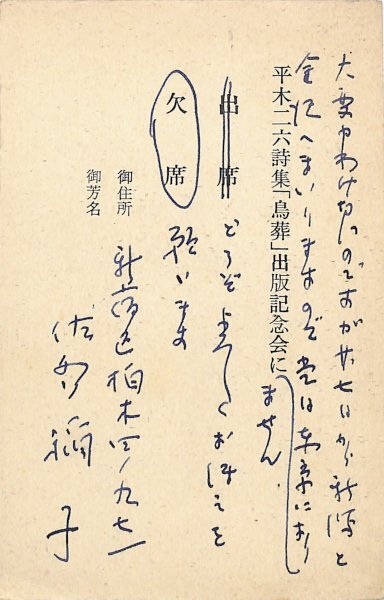 大変申わけないのですが廿七日から新潟と
金沢へまいりますので当日は東京におり
ません
平木二六詩集「鳥葬」出版記念会に
出席
どうぞよろしくお伝えを
欠席
願います
御住所
新宿区柏木四ノ九七一
御芳名
佐多稲子